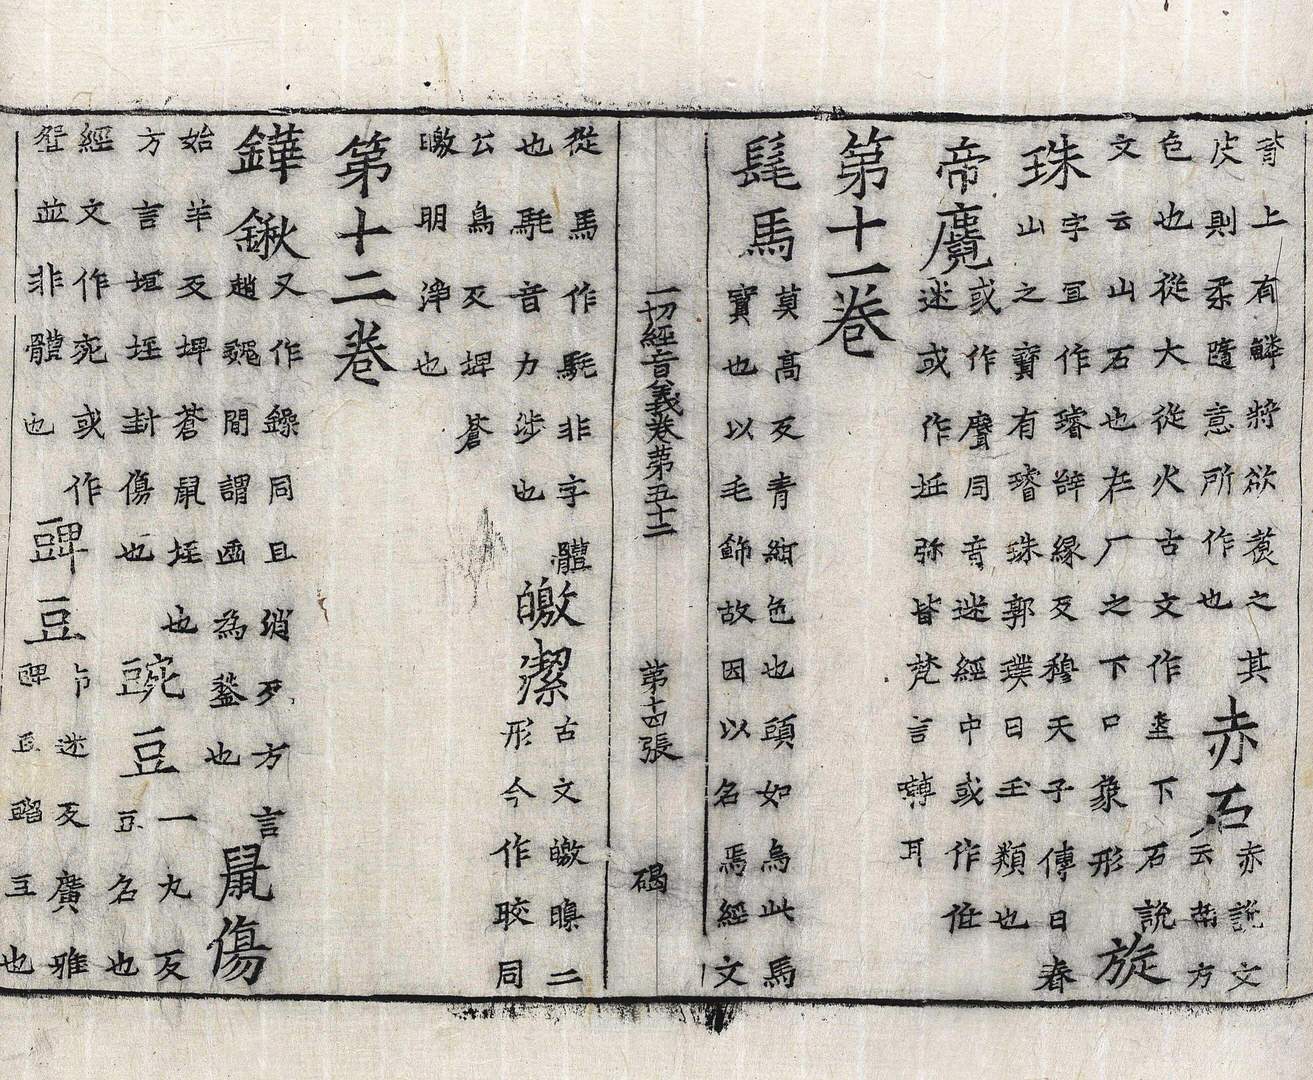 脊上有鱗將欲蓑之其
皮則柔隨意所作也
赤石赤說文
云南方
色也從大從火古文作烾下石說
文云山石也在厂之下口象形
旋珠山之寶有璿珠郭璞曰玉類也
字宜作璿辝緣反穆天子傳曰春
帝魔或作磨同音迷經中或作仾
迷或作坘弥皆梵言轉耳
第十一卷
髦馬莫高反青紺色也頭如烏此馬
寶也以毛飾故因以名焉經文
一切經音義卷第五十二 第十四張 碣
從馬作駀非字體
也毦音力涉也
皦潔古文皦曒二
形今作皎同
公鳥反埤蒼
皦明淨也
第十二卷
鏵鍬又作鐰同且消反方言
趙魏間謂臿為鍫也
鼠傷
始羊反埤蒼鼠垤也
方言垣垤封傷也
豌豆一丸反
豆名也
經文作宛或作
登並非體也
豍豆布迷反廣雅
豍豆䝁豆也